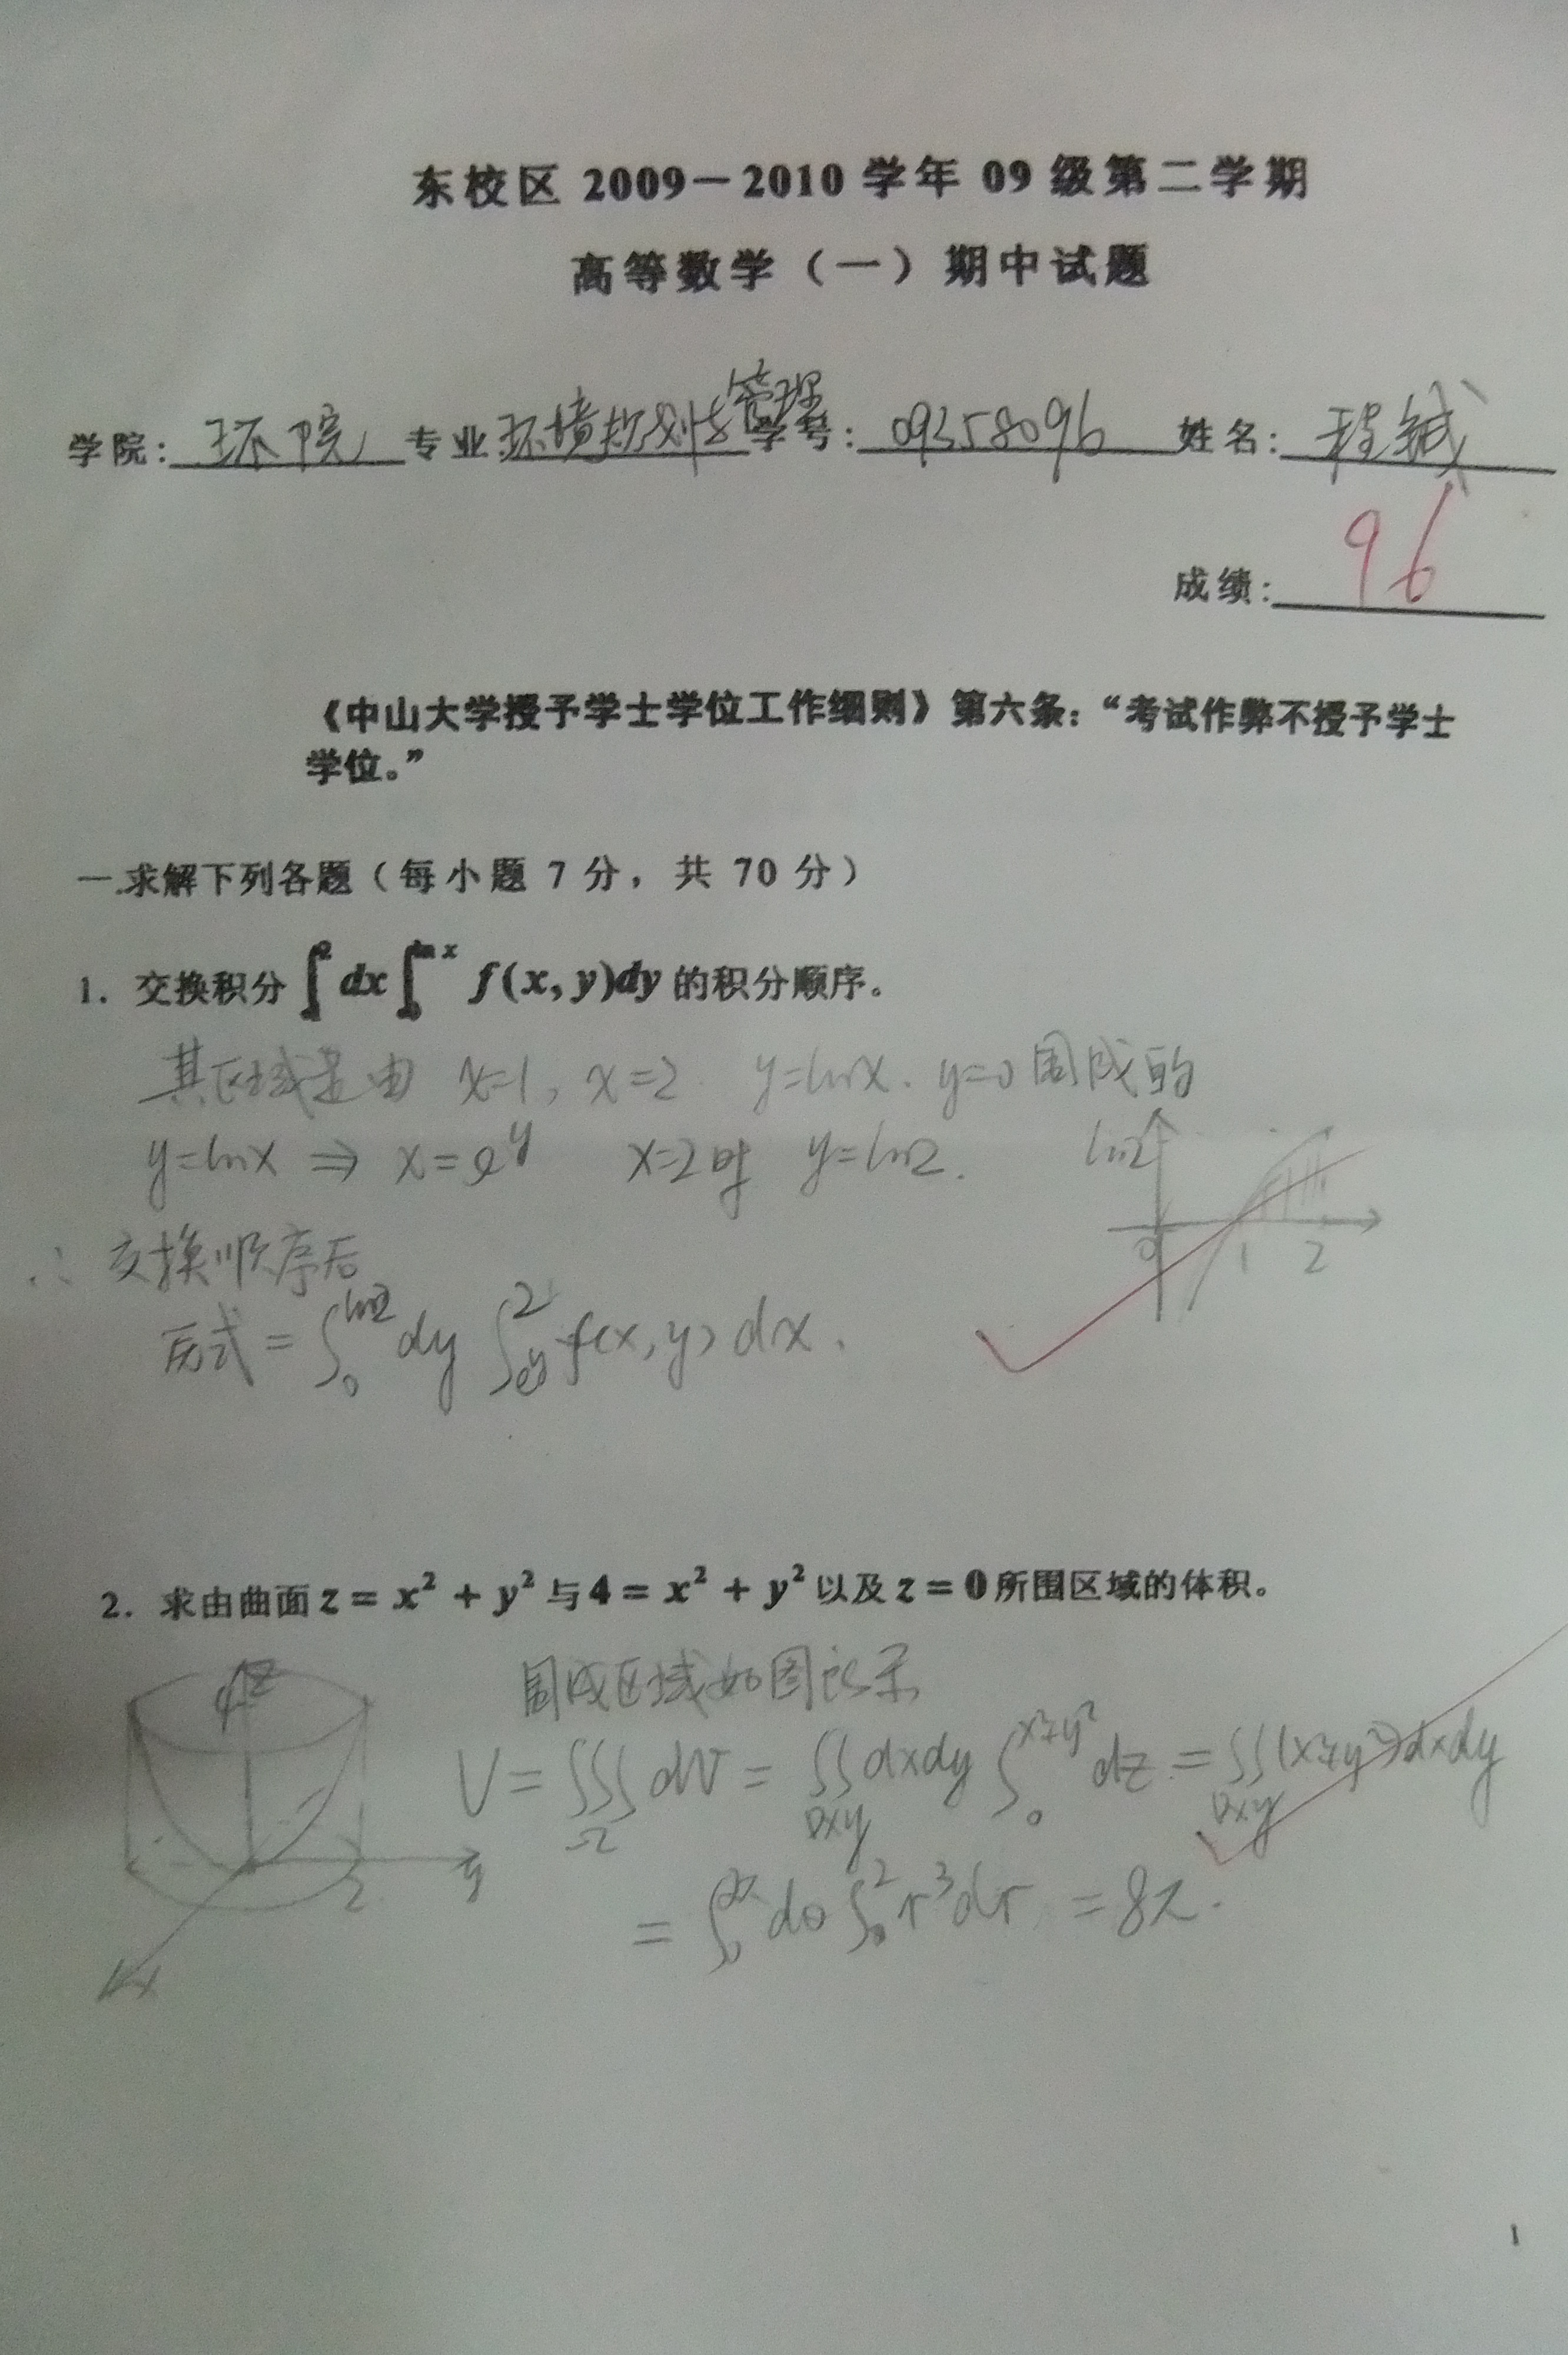 东校区 2009－2010 学年 09 级第二学期
高等数学（一）期中试题
学院: 环院 专业 环境规划与管理 学号: 09358096 姓名: 程
成绩: 96
《中山大学授予学士学位工作细则》第六条：“考试作弊不授予学士
学位。”
一.求解下列各题（每小题 7 分，共 70 分）
1. 交换积分 ∫ dx ∫ f(x, y)dy 的积分顺序。
其区域是由 x=1, x=2 y=lnx. y=0围成的
y=lnx ⇒ x=e^y x=2时 y=ln2.
ln2
0 1 2
∴ 交换顺序后
原式 = ∫_0^{ln2} dy ∫_{e^y}^2 f(x,y) dx.
2. 求由曲面 z = x² + y² 与 4 = x² + y² 以及 z = 0 所围区域的体积。
围成区域如图所示
4 z
V = ∭_Ω dV = ∬_{Dxy} dxdy ∫_0^{x²+y²} dz = ∬_{Dxy} (x²+y²) dxdy
2 y
= ∫_0^{2π} dθ ∫_0^2 r³dr = 8π.
x
1